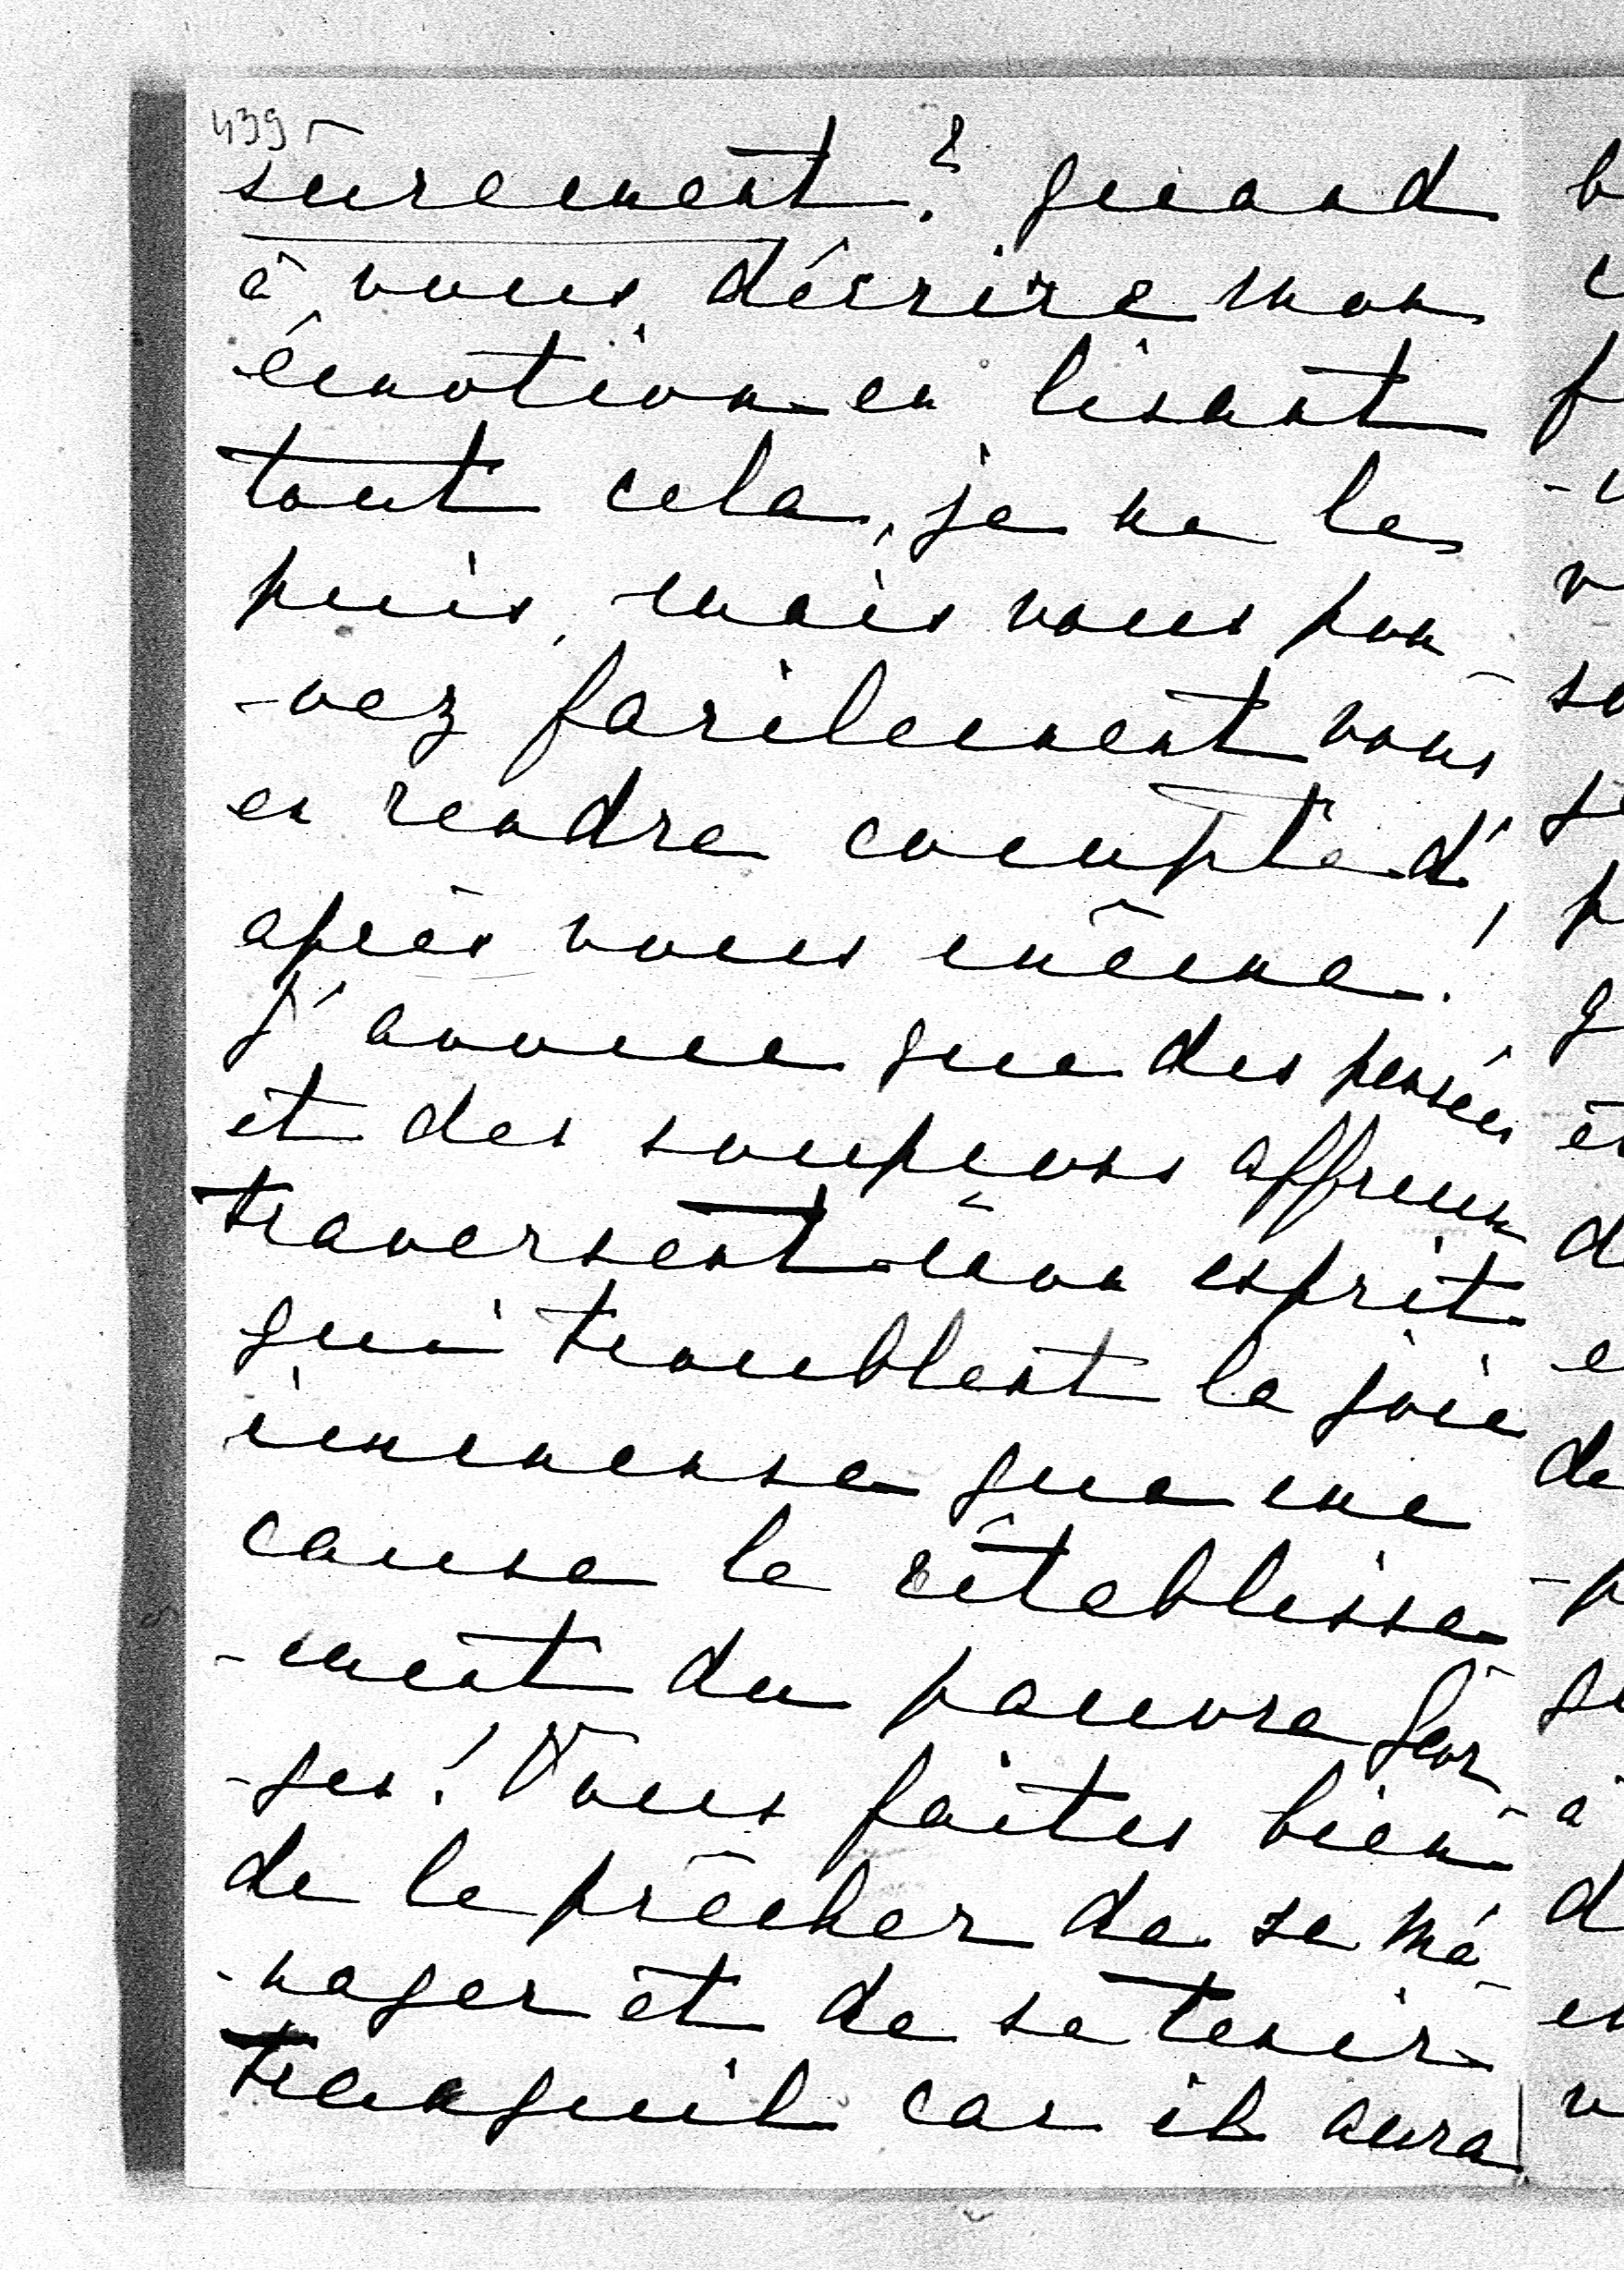 439
sûrement? quand
à vous décrire mon
émotion en lisant
tout cela, je ne le
puis, mais vous pou
-vez facilement vous
en rendre compte d'
après vous même!
J'avoue que des pensées
et des soupçons affreux
traversent mon esprit
qui troublent la joie
immense que me
cause le rétablisse-
-ment du pauvre Geor-
-ges! Vous faites bien
de le prêcher de se mé-
-nager et de se tenir
tranquil car il aura